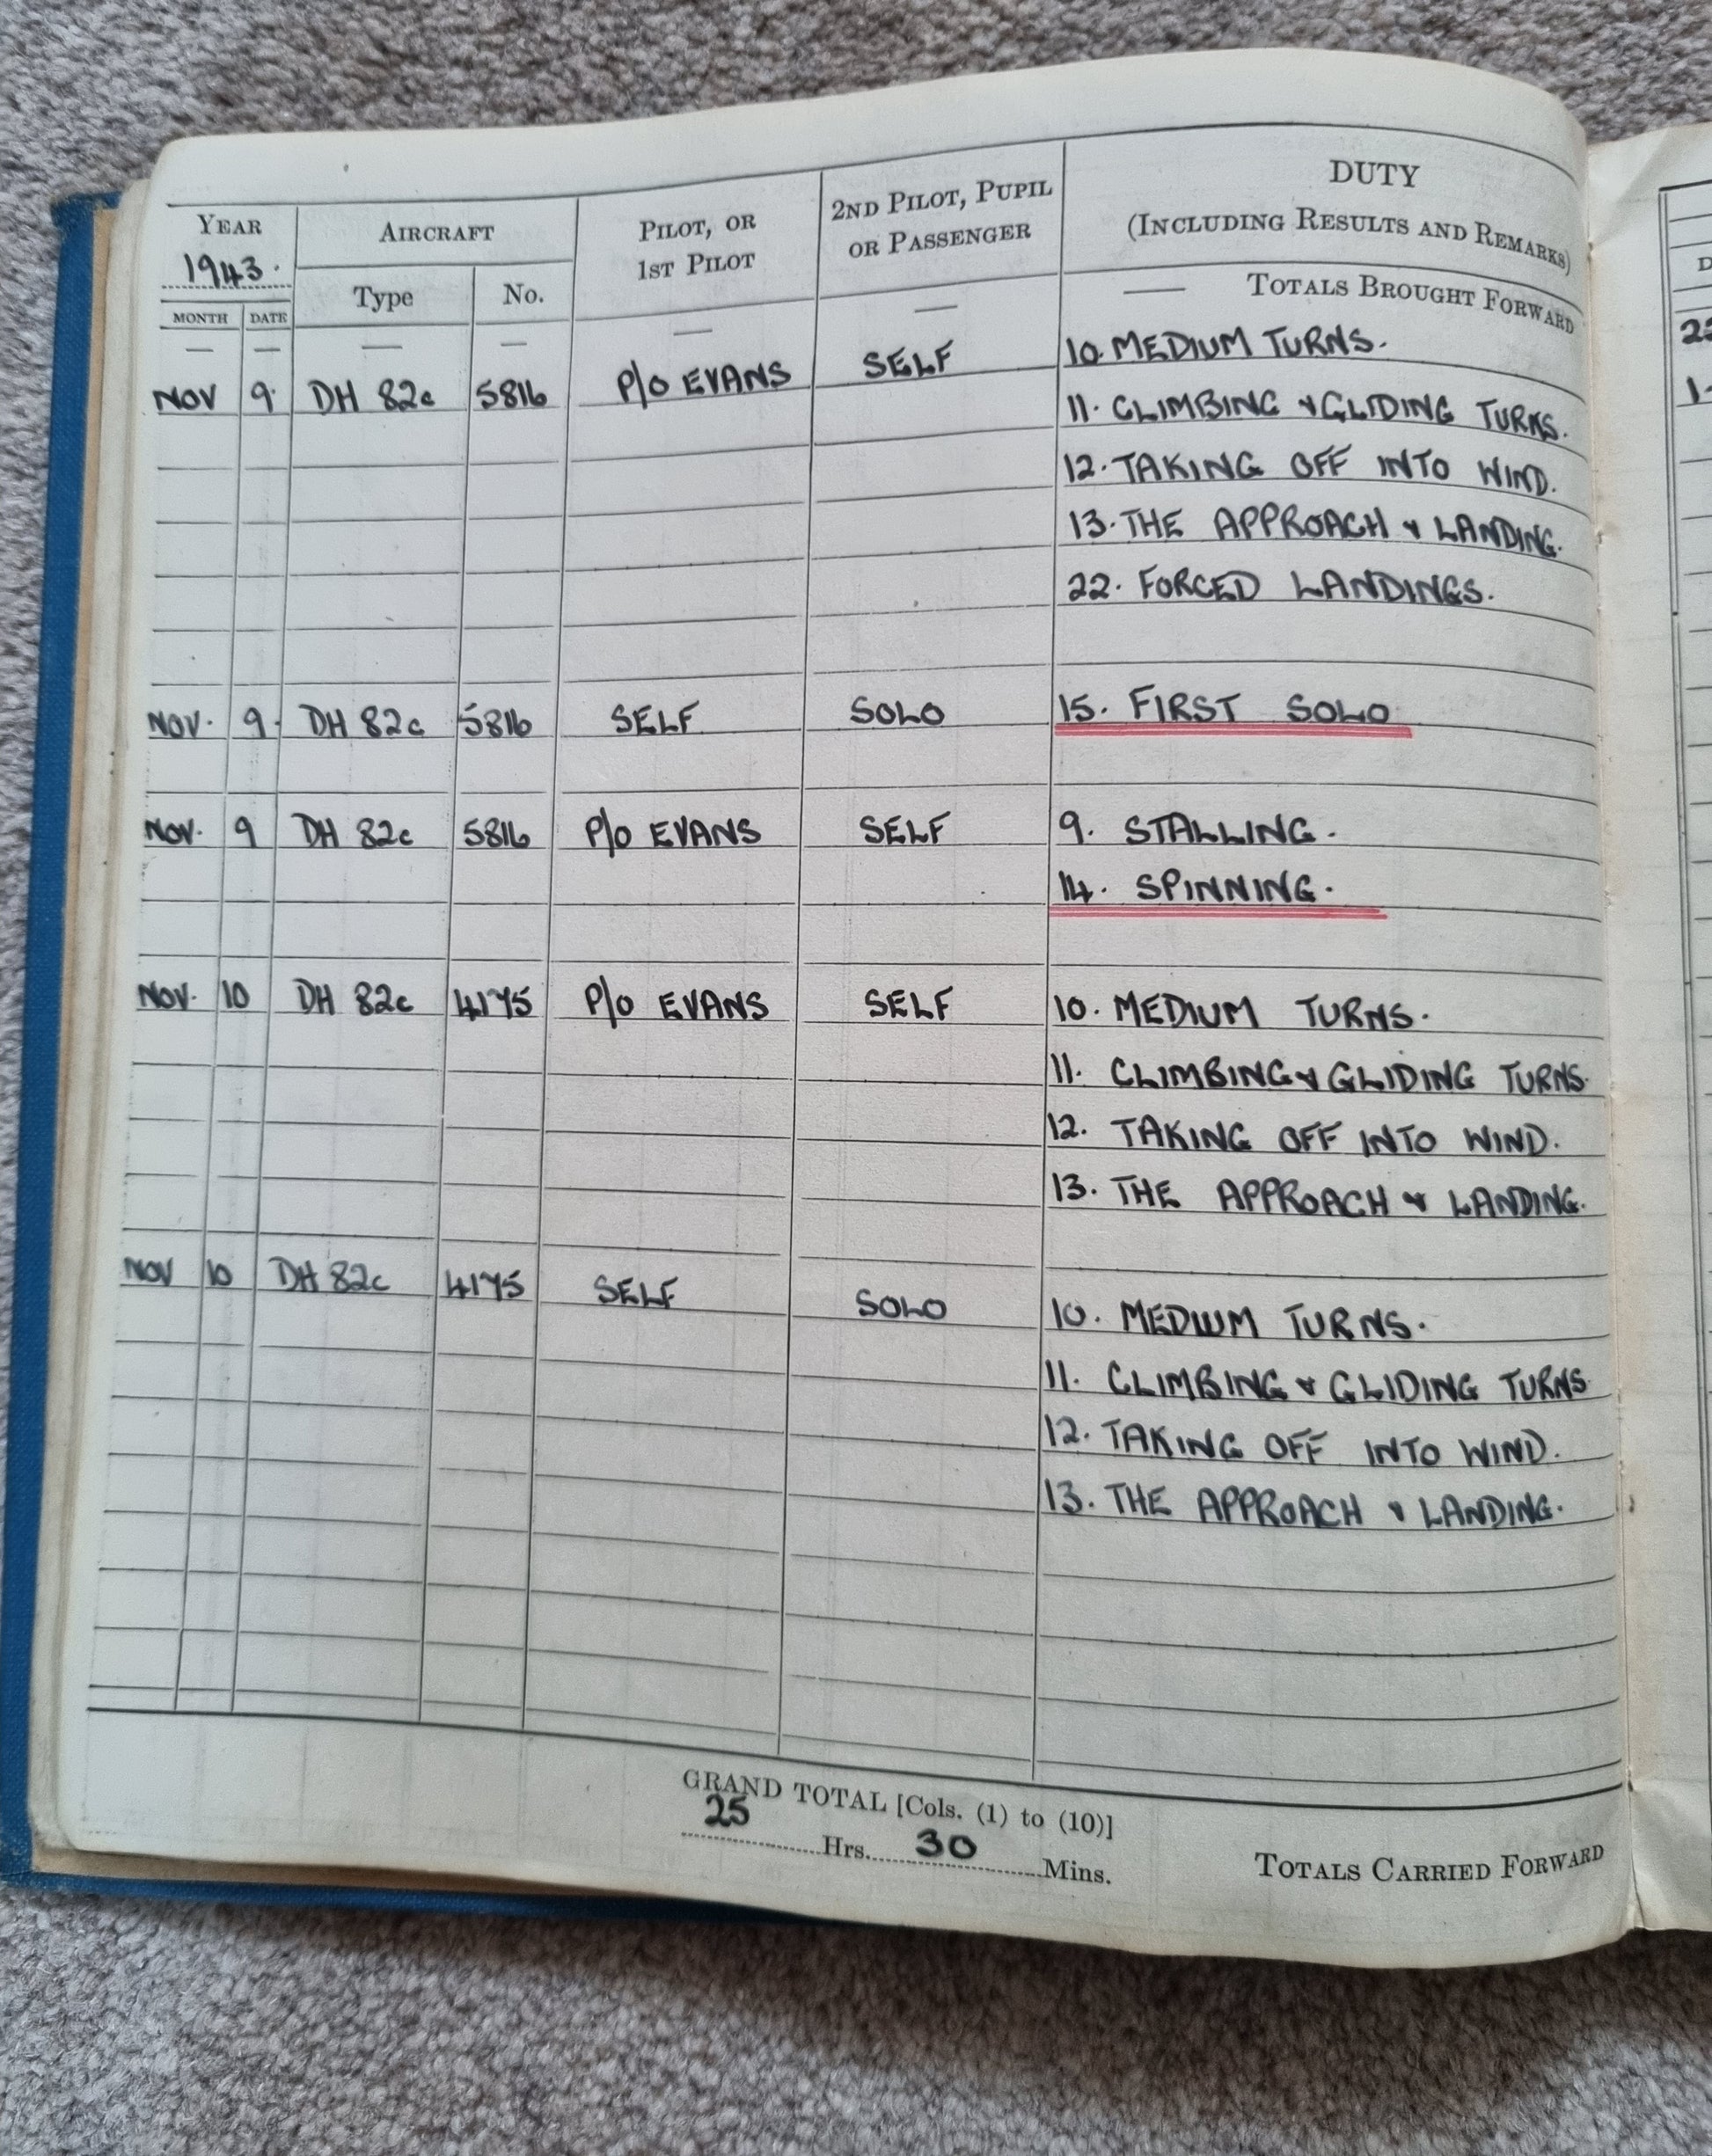 YEAR AIRCRAFT PILOT, OR 1ST PILOT 2ND PILOT, PUPIL OR PASSENGER DUTY
(INCLUDING RESULTS AND REMARKS)
1943.
MONTH DATE Type No.
— — — — — — — TOTALS BROUGHT FORWARD
NOV 9. DH 82c 5816 P/O EVANS SELF 10. MEDIUM TURNS.
11. CLIMBING & GLIDING TURNS.
12. TAKING OFF INTO WIND.
13. THE APPROACH & LANDING.
22. FORCED LANDINGS.
NOV. 9. DH 82c 5816 SELF SOLO 15. FIRST SOLO
NOV. 9 DH 82c 5816 P/O EVANS SELF 9. STALLING.
14. SPINNING.
NOV. 10 DH 82c 4175 P/O EVANS SELF 10. MEDIUM TURNS.
11. CLIMBING & GLIDING TURNS.
12. TAKING OFF INTO WIND.
13. THE APPROACH & LANDING.
NOV 10 DH 82c 4175 SELF SOLO 10. MEDIUM TURNS.
11. CLIMBING & GLIDING TURNS
12. TAKING OFF INTO WIND.
13. THE APPROACH & LANDING.
GRAND TOTAL [Cols. (1) to (10)]
25 Hrs. 30 Mins.
TOTALS CARRIED FORWARD